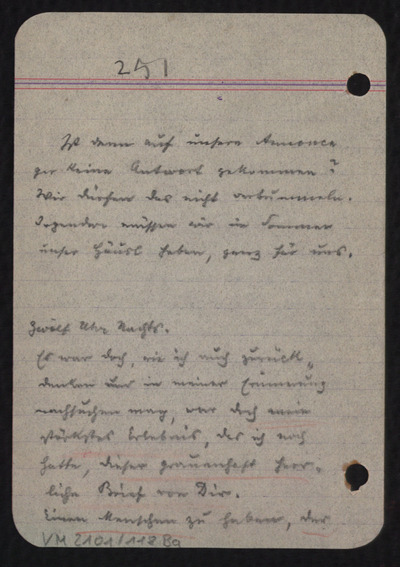 251
Ist denn auf unsere Annonce
gar keine Antwort gekommen?
Wir dürfen das nicht verbummeln.
Irgendwo müssen wir im Sommer
unser Häusl haben, ganz für uns.
Zwölf Uhr Nachts.
Es war doch, wie ich auch zurück-
denken und in meiner Erinnerung
nachsuchen mag, war doch mein
stärkstes Erlebnis, das ich noch
hatte, dieser grauenhaft herr-
liche Brief von Dir.
Einen Menschen zu haben, der
VM 2101/118 Ba